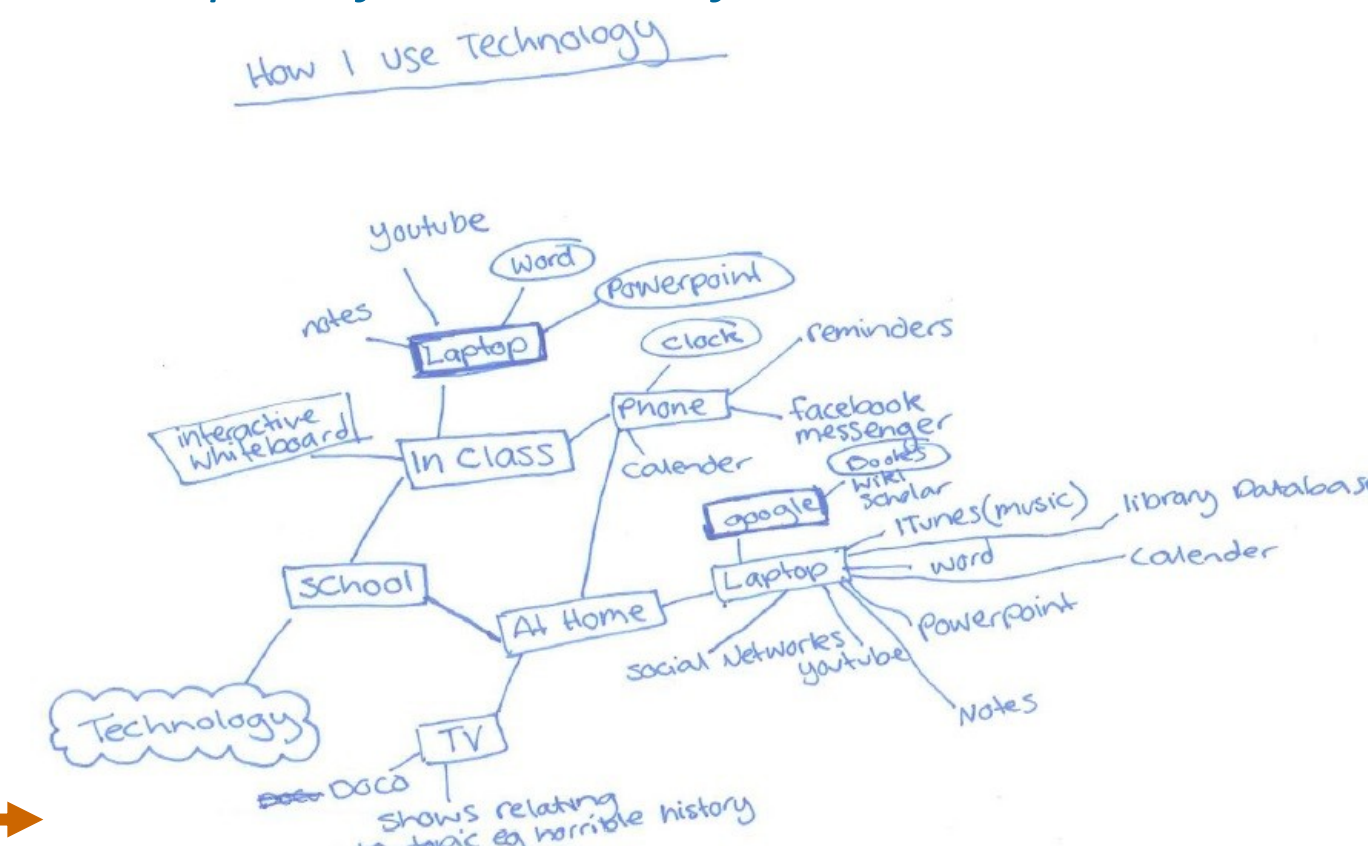 How I use Technology
youtube
word
Powerpoint
notes
Laptop
clock
reminders
Phone
facebook
messenger
interactive
whiteboard
In class
calender
Books
wiki
scholar
google
ITunes(music)
library Databas
Laptop
word
calender
School
At Home
Powerpoint
social Networks
youtube
Notes
Technology
TV
DOCO
shows relating
topic eg horrible history